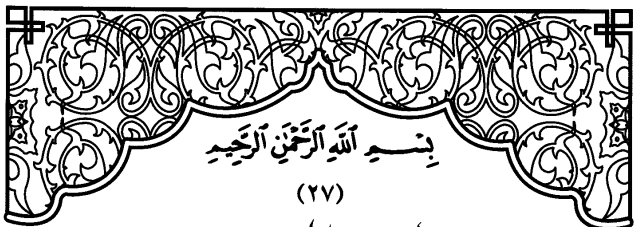 بِسْمِ ٱللَّهِ ٱلرَّحْمَٰنِ ٱلرَّحِيمِ
(٢٧)